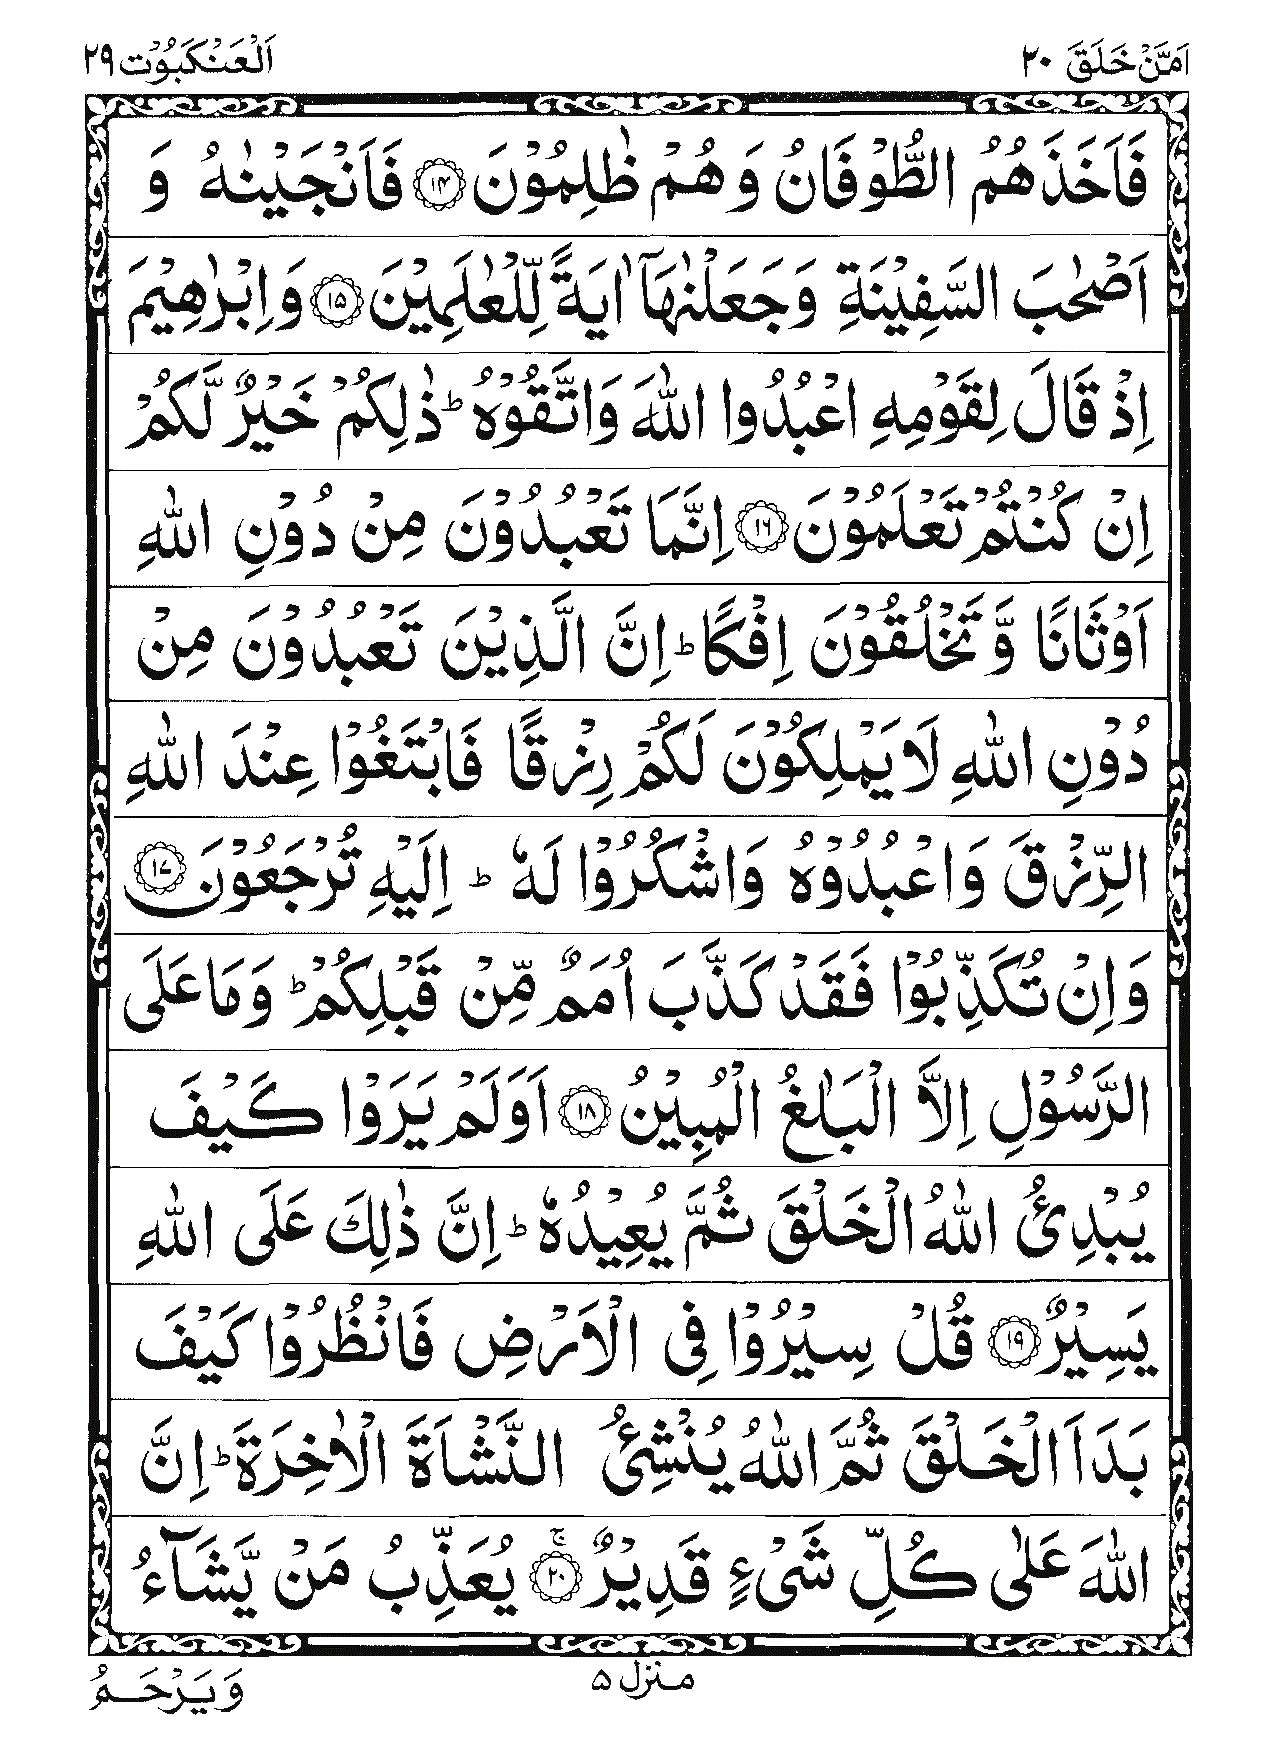 اَمَّنْ خَلَقَ ۲۰
اَلْعَنْكَبُوْت ۲۹
فَاَخَذَهُمُ الطُّوْفَانُ وَهُمْ ظٰلِمُوْنَ ۝۱۴ فَاَنْجَيْنٰهُ وَ
اَصْحٰبَ السَّفِيْنَةِ وَجَعَلْنٰهَاۤ اٰيَةً لِّلْعٰلَمِيْنَ ۝۱۵ وَاِبْرٰهِيْمَ
اِذْ قَالَ لِقَوْمِهِ اعْبُدُوا اللّٰهَ وَاتَّقُوْهُ ؕ ذٰلِكُمْ خَيْرٌ لَّكُمْ
اِنْ كُنْتُمْ تَعْلَمُوْنَ ۝۱۶ اِنَّمَا تَعْبُدُوْنَ مِنْ دُوْنِ اللّٰهِ
اَوْثَانًا وَّتَخْلُقُوْنَ اِفْكًا ؕ اِنَّ الَّذِيْنَ تَعْبُدُوْنَ مِنْ
دُوْنِ اللّٰهِ لَا يَمْلِكُوْنَ لَكُمْ رِزْقًا فَابْتَغُوْا عِنْدَ اللّٰهِ
الرِّزْقَ وَاعْبُدُوْهُ وَاشْكُرُوْا لَهٗ ؕ اِلَيْهِ تُرْجَعُوْنَ ۝۱۷
وَاِنْ تُكَذِّبُوْا فَقَدْ كَذَّبَ اُمَمٌ مِّنْ قَبْلِكُمْ ؕ وَمَا عَلَى
الرَّسُوْلِ اِلَّا الْبَلٰغُ الْمُبِيْنُ ۝۱۸ اَوَلَمْ يَرَوْا كَيْفَ
يُبْدِئُ اللّٰهُ الْخَلْقَ ثُمَّ يُعِيْدُهٗ ؕ اِنَّ ذٰلِكَ عَلَى اللّٰهِ
يَسِيْرٌ ۝۱۹ قُلْ سِيْرُوْا فِى الْاَرْضِ فَانْظُرُوْا كَيْفَ
بَدَاَ الْخَلْقَ ثُمَّ اللّٰهُ يُنْشِئُ النَّشْاَةَ الْاٰخِرَةَ ؕ اِنَّ
اللّٰهَ عَلٰى كُلِّ شَىْءٍ قَدِيْرٌ ۝۲۰ۚ يُعَذِّبُ مَنْ يَّشَآءُ
منزل ۵
وَيَرْحَمُ